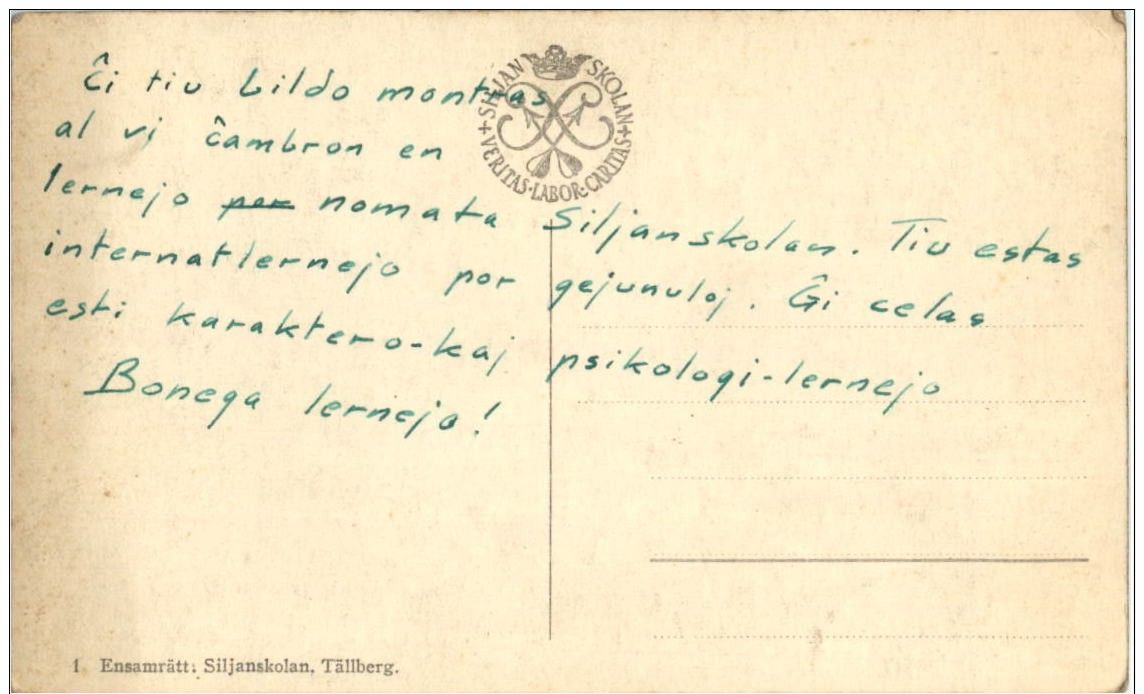 SILJAN SKOLAN
+ VERITAS · LABOR · CARITAS +
Ĉi tiu bildo montras
al vi ĉambron en
lernejo per nomata Siljanskolan. Tiu estas
internatlernejo por gejunuloj. Ĝi celas
esti karaktero-kaj psikologi-lernejo
Bonega lernejo!
1 Ensamrätt: Siljanskolan, Tällberg.